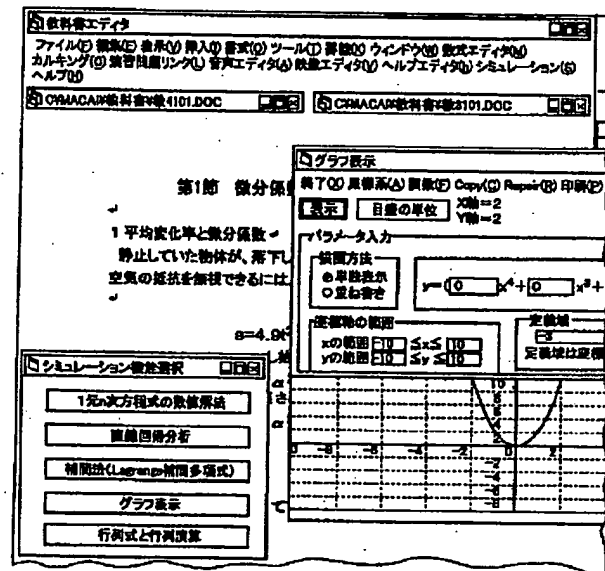 教科書エディタ
ファイル(F) 編集(E) 表示(V) 挿入(I) 書式(O) ツール(T) 罫線(X) ウィンドウ(W) 数式エディタ(M)
カルキング(Q) 演習問題リンク(L) 音声エディタ(A) 映像エディタ(Y) ヘルプエディタ(h) シミュレーション(S)
ヘルプ(H)
C:¥MACAD¥教科書¥数4101.DOC
C:¥MACAD¥教科書¥数3101.DOC
第1節 微分係
1 平均変化率と微分係数
静止していた物体が、落下し
空気の抵抗を無視できるには
s=4.9t²
グラフ表示
終了(X) 座標系(A) 関数(F) Copy(C) Repair(R) 印刷(P)
表示
目盛の単位
X軸=2
Y軸=2
パラメータ入力
描画方法
単独表示
重ね書き
y=( 0 )x⁴+ 0 x³+
座標軸の範囲
xの範囲 -10 ≦x≦ 10
yの範囲 -10 ≦y≦ 10
定義域
-3
定義域は座標
シミュレーション機能選択
1元n次方程式の数値解法
直線回帰分析
補間法(Lagrange補間多項式)
グラフ表示
行列式と行列演算
α
さ
α
て
10
8
6
4
2
0 -8 -6 -4 -2 0 2
-2
-4
-6
-8